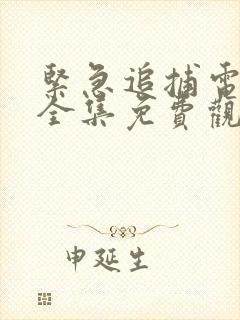 緊急追捕電
全集免費觀
申延生